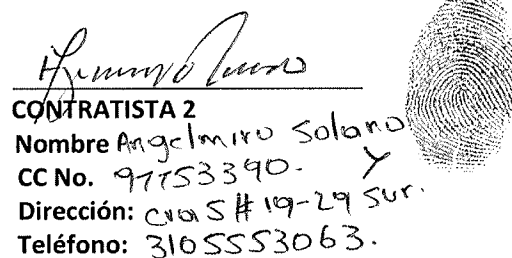 CONTRATISTA 2
Nombre Angelmiro Solano Y
CC No. 97753390.
Dirección: cra 5 # 19-29 sur.
Teléfono: 3105553063.